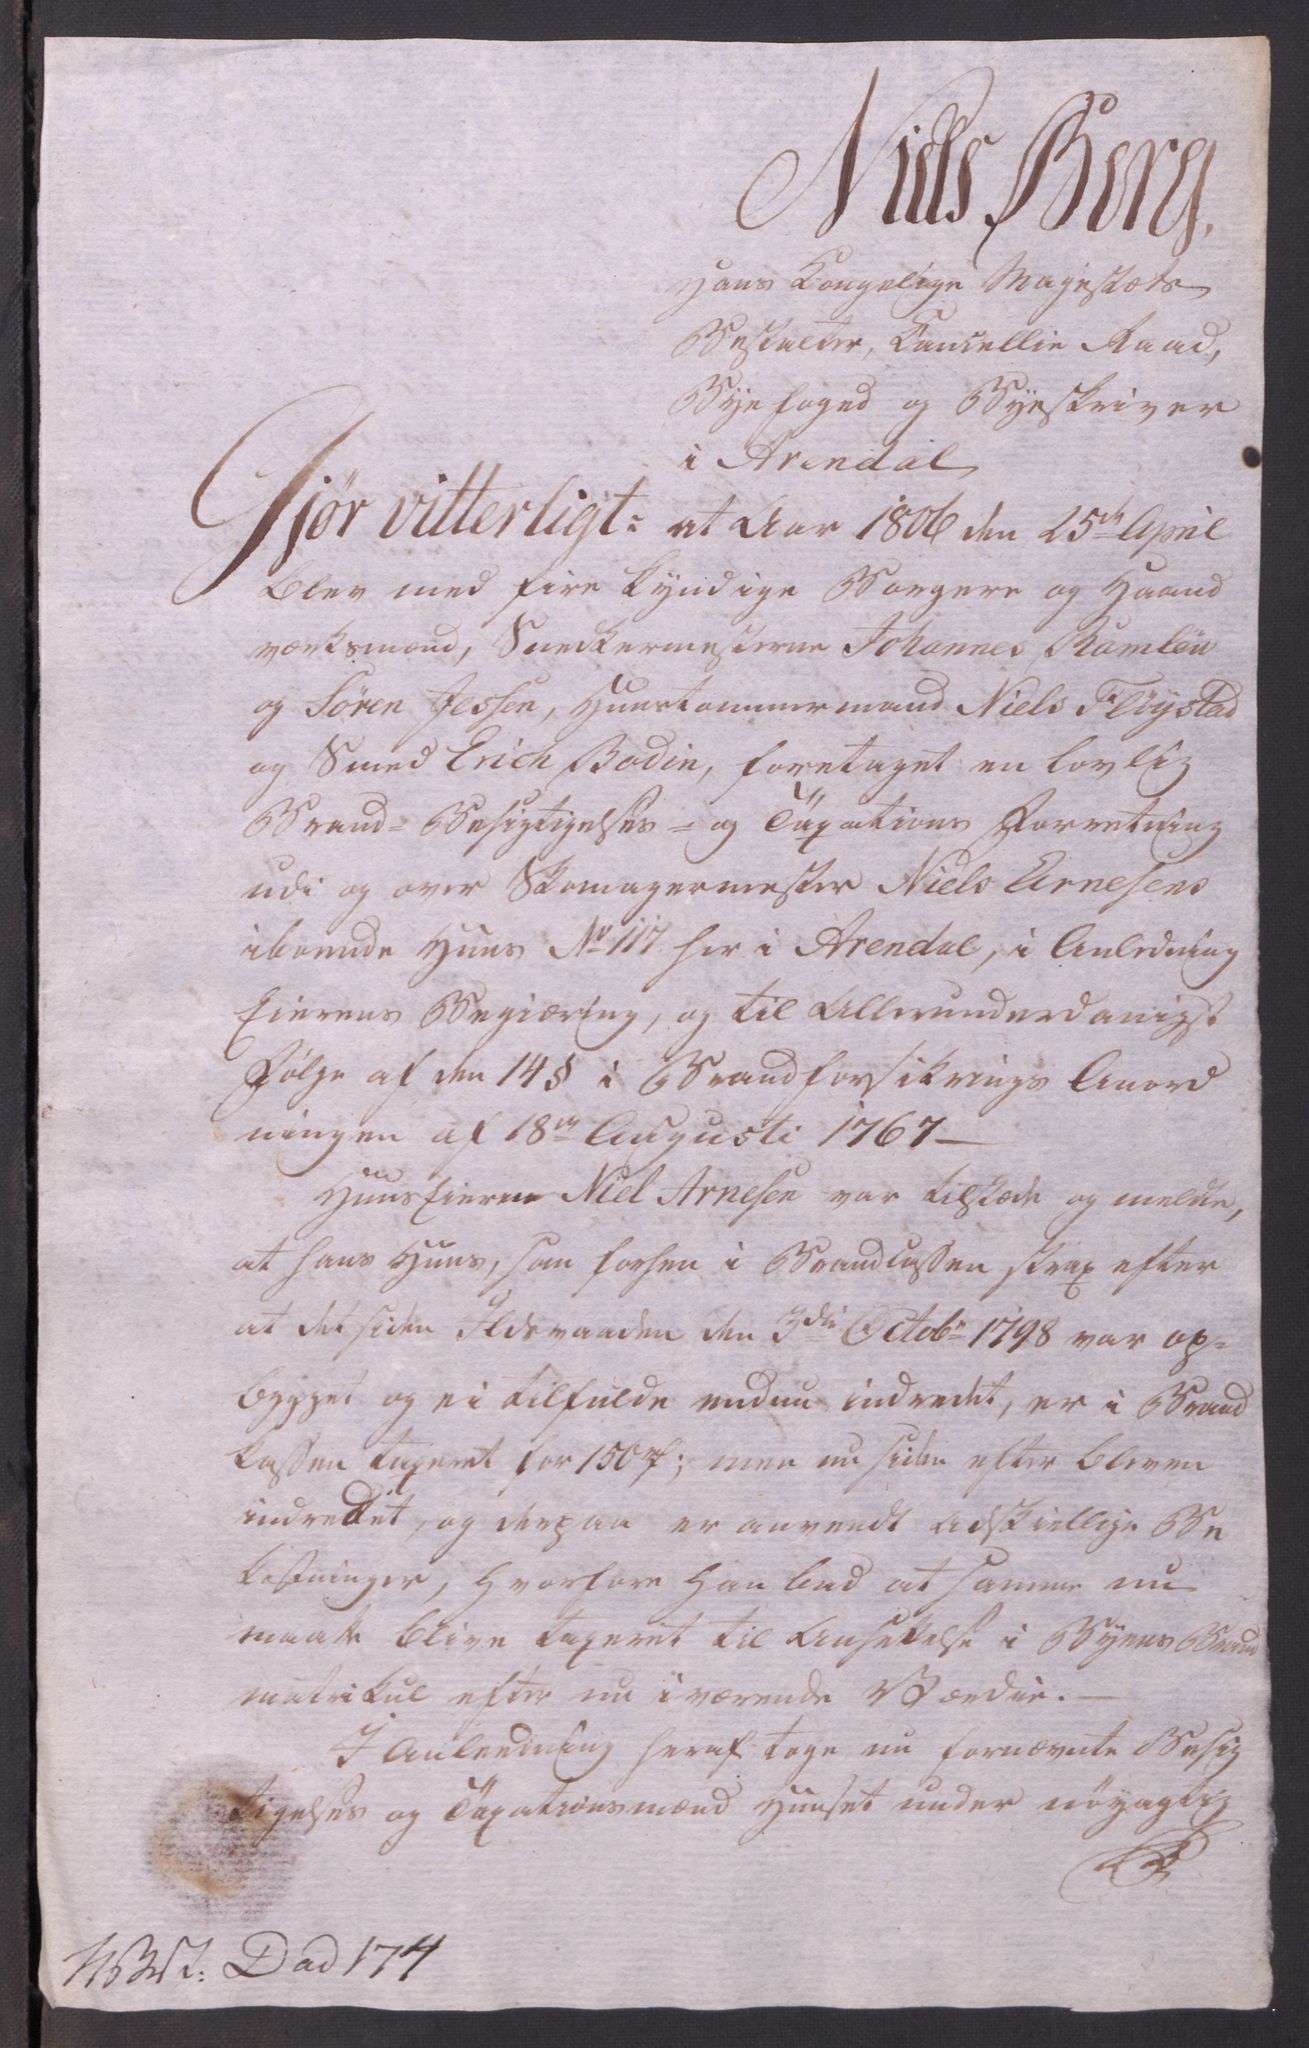 Niels Berg,
Hans Kongelige Majestæts
Bestalter, Cancellie Raad,
Byefoged og Byeskriver
i Arendal,
Gjør vitterligt: at Aar 1806 den 25de April
blev med fire kyndige Borgere og Haand
værksmænd, Snedkermesterne Johannes Ramlöu
og Sören Jessen, Huustømmermand Niels Flöystad
og Smed Erich Bodin, foretaget en lovlig
Brand- Besigtigelses- og Taxations Forretning
udi og over Skomagermester Niels Arnesens
iboende Huus No 117 her i Arendal, i Anledning
Eierens Begiæring, og til Allerunderdanigst
Følge af den 14 § i Brandforsikrings Anord
ningen af 18de Augusti 1767 —
Huuseieren Niel Arnesen var tilstæde og meldte,
at hans Huus, som forhen i Brandcassen strax efter
at det siden Ildsvaaden den 3die Octobr 1798 var op-
bygget og ei tilfulde endnu indredet, er i Brand
kassen taxeret for 150 rd; men nu siden efter bleven
indredet, og derpaa er anvendt adskiellige Be
kostninger, hvorfore han bad at samme nu
maatte blive taxeret til Ansettelse i Byens Brand
matrikul efter nu iværende Værdie. —
I Anledning heraf toge nu fornævnte Besig
tigelses og Taxationsmænd Huuset under nöyagtig
Dad 174